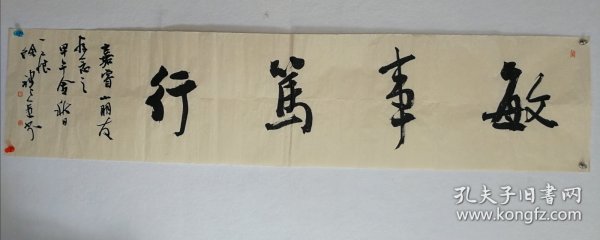 敏事篤行
嘉宵小朋友
存念之
甲午金秋日
孔夫子旧书网
www.kongfz.com